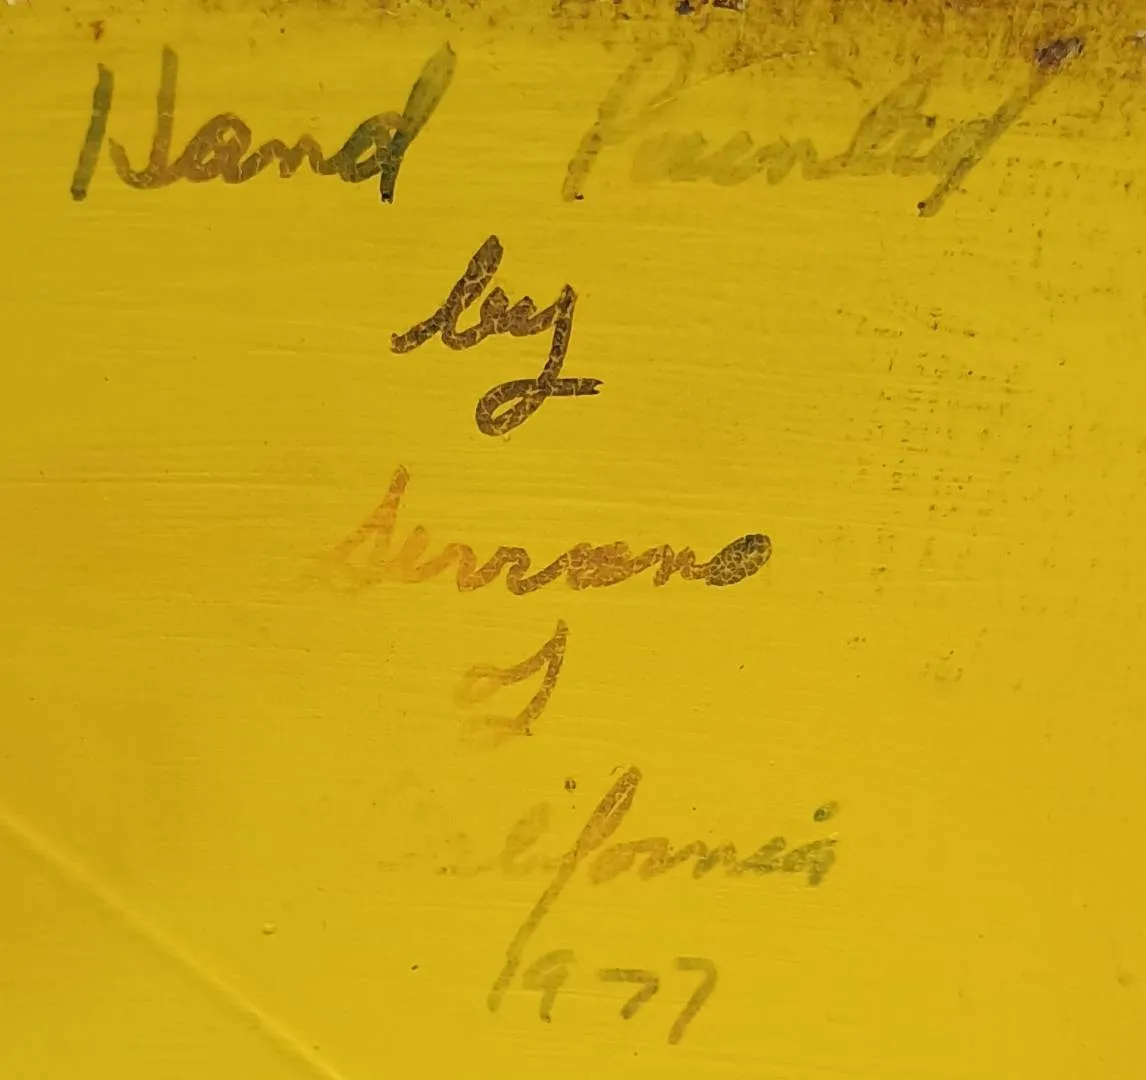 Hand Painted
by
Serrano
of
California
1977